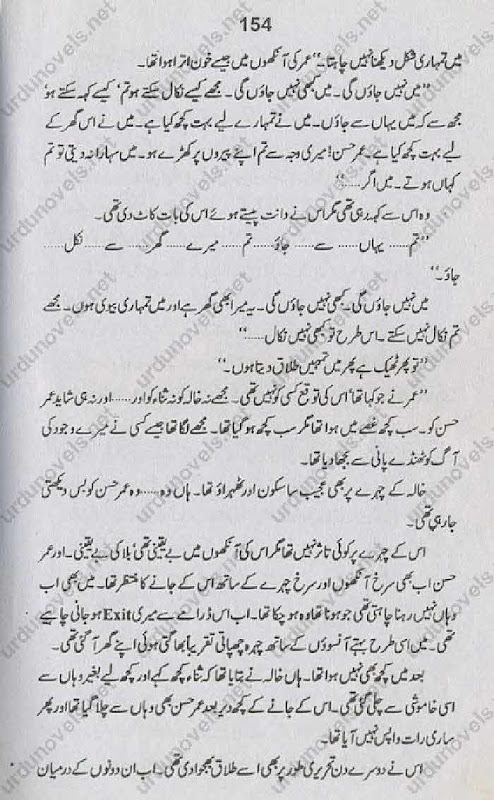 154
میں تمہاری شکل دیکھنا نہیں چاہتا۔‘‘ عمر کی آنکھوں میں جیسے خون اترا ہوا تھا۔
’’میں نہیں جاؤں گی۔ میں کبھی نہیں جاؤں گی۔ مجھے کیسے نکال سکتے ہو تم‘ کیسے کہہ سکتے ہو‘
مجھ سے کہ میں یہاں سے جاؤں۔ میں نے تمہارے لیے بہت کچھ کیا ہے۔ میں نے اس گھر کے
لیے بہت کچھ کیا ہے۔ عمر حسن! میری وجہ سے تم اپنے پیروں پر کھڑے ہو۔ میں سہارا نہ دیتی تو تم
کہاں ہوتے۔ میں اگر......‘‘
وہ اس سے کہہ رہی تھی مگر اس نے دانت پیستے ہوئے اس کی بات کاٹ دی تھی۔
’’تم..... یہاں ..... سے ..... جاؤ ..... تم ..... میرے ..... گھر ..... سے ..... نکل .....
جاؤ۔‘‘
میں نہیں جاؤں گی۔ کبھی نہیں جاؤں گی۔ یہ میرا بھی گھر ہے اور میں تمہاری بیوی ہوں۔ مجھے
تم نکال نہیں سکتے۔ اس طرح تو کبھی نہیں نکال......‘‘
’’تو پھر ٹھیک ہے پھر میں تمہیں طلاق دیتا ہوں۔‘‘
’’عمر نے جو کہا تھا‘ اس کی توقع کسی کو نہیں تھی۔ مجھے نہ خالہ کو نہ ثناء کو اور...... اور نہ ہی شاید عمر
حسن کو۔ سب کچھ غصے میں ہوا تھا مگر سب کچھ ہو گیا تھا۔ مجھے لگا تھا جیسے کسی نے میرے وجود کی
آگ کو ٹھنڈے پانی سے بجھا دیا تھا۔
خالہ کے چہرے پر بھی عجیب سا سکون اور ٹھہراؤ تھا۔ ہاں وہ......وہ عمر حسن کو بس دیکھتی
جا رہی تھی۔
اس کے چہرے پر کوئی تاثر نہیں تھا مگر اس کی آنکھوں میں بے یقینی تھی‘ بلا کی بے یقینی۔ اور عمر
حسن اب بھی سرخ آنکھوں اور سرخ چہرے کے ساتھ اس کے جانے کا منتظر تھا۔ میں بھی اب
وہاں نہیں رہنا چاہتی تھی جو ہونا تھا وہ ہو چکا تھا۔ اب اس ڈرامے سے میری Exit ہو جانی چاہیے
تھی۔ میں اسی طرح بہتے آنسوؤں کے ساتھ چہرہ چھپاتی تقریباً بھاگتی ہوئی اپنے گھر آ گئی تھی۔
بعد میں کچھ بھی نہیں ہوا تھا۔ ہاں خالہ نے بتایا تھا کہ ثناء کچھ کہے اور کچھ لیے بغیر وہاں سے
اسی خاموشی سے چلی گئی تھی۔ اس کے جانے کے کچھ دیر بعد عمر حسن بھی وہاں سے چلا گیا تھا اور پھر
ساری رات واپس نہیں آیا تھا۔
اس نے دوسرے دن تحریری طور پر بھی اسے طلاق بھجوا دی تھی۔ اب ان دونوں کے درمیان